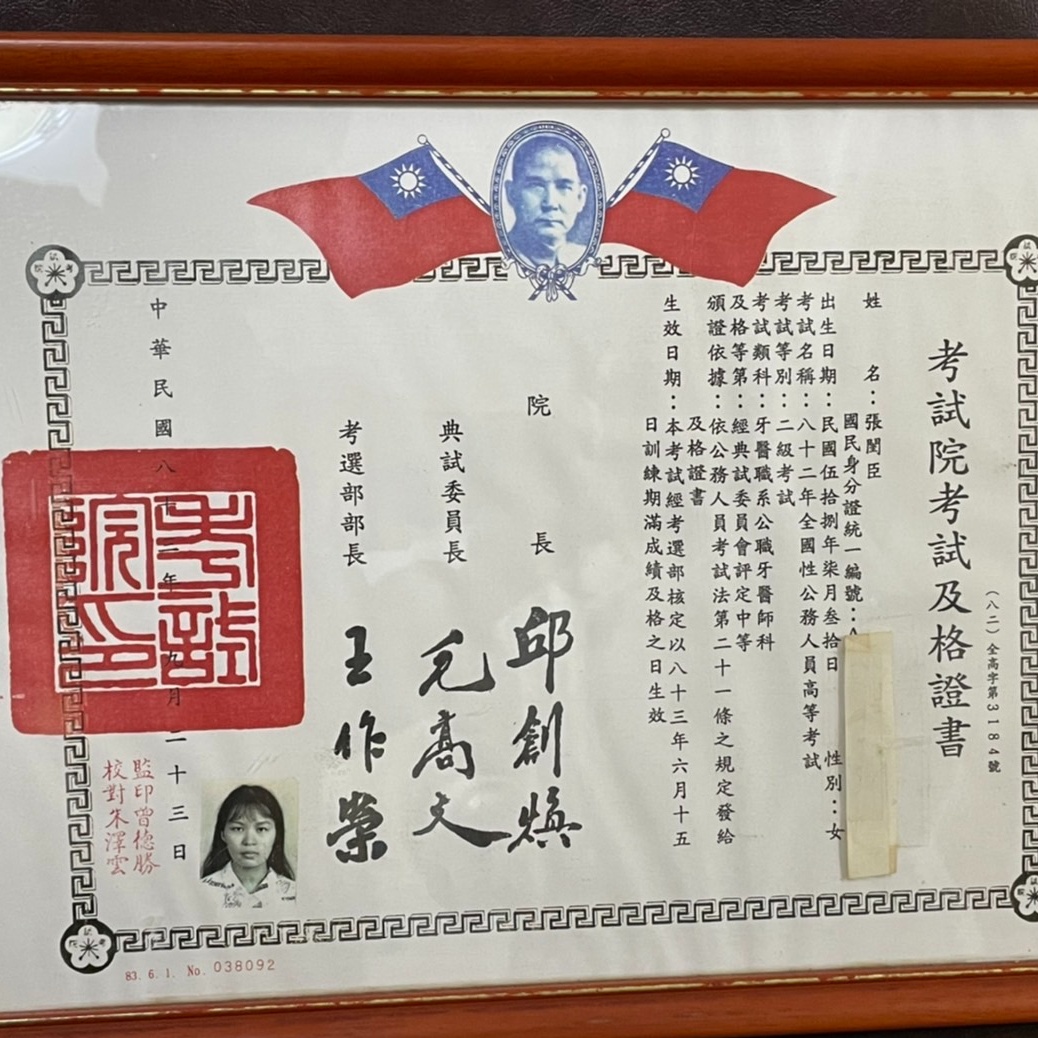 （八二）全高字第3184號
考試院考試及格證書
姓名：張閏臣
國民身分證統一編號：A
出生日期：民國伍拾捌年柒月叁拾日 性別：女
考試名稱：八十二年全國性公務人員高等考試
考試等別：二級考試
考試類科：牙醫職系公職牙醫師科
及格等第：經典試委員會評定中等
頒證依據：依公務人員考試法第二十一條之規定發給
及格證書
生效日期：本考試經考選部核定以八十三年六月十五
日訓練期滿成績及格之日生效
院長 邱創煥
典試委員長 尤高文
考選部部長 王作榮
中華民國八十二年九月二十三日
考試院印
監印曾德勝
校對朱澤雲
83. 6. 1. No. 038092